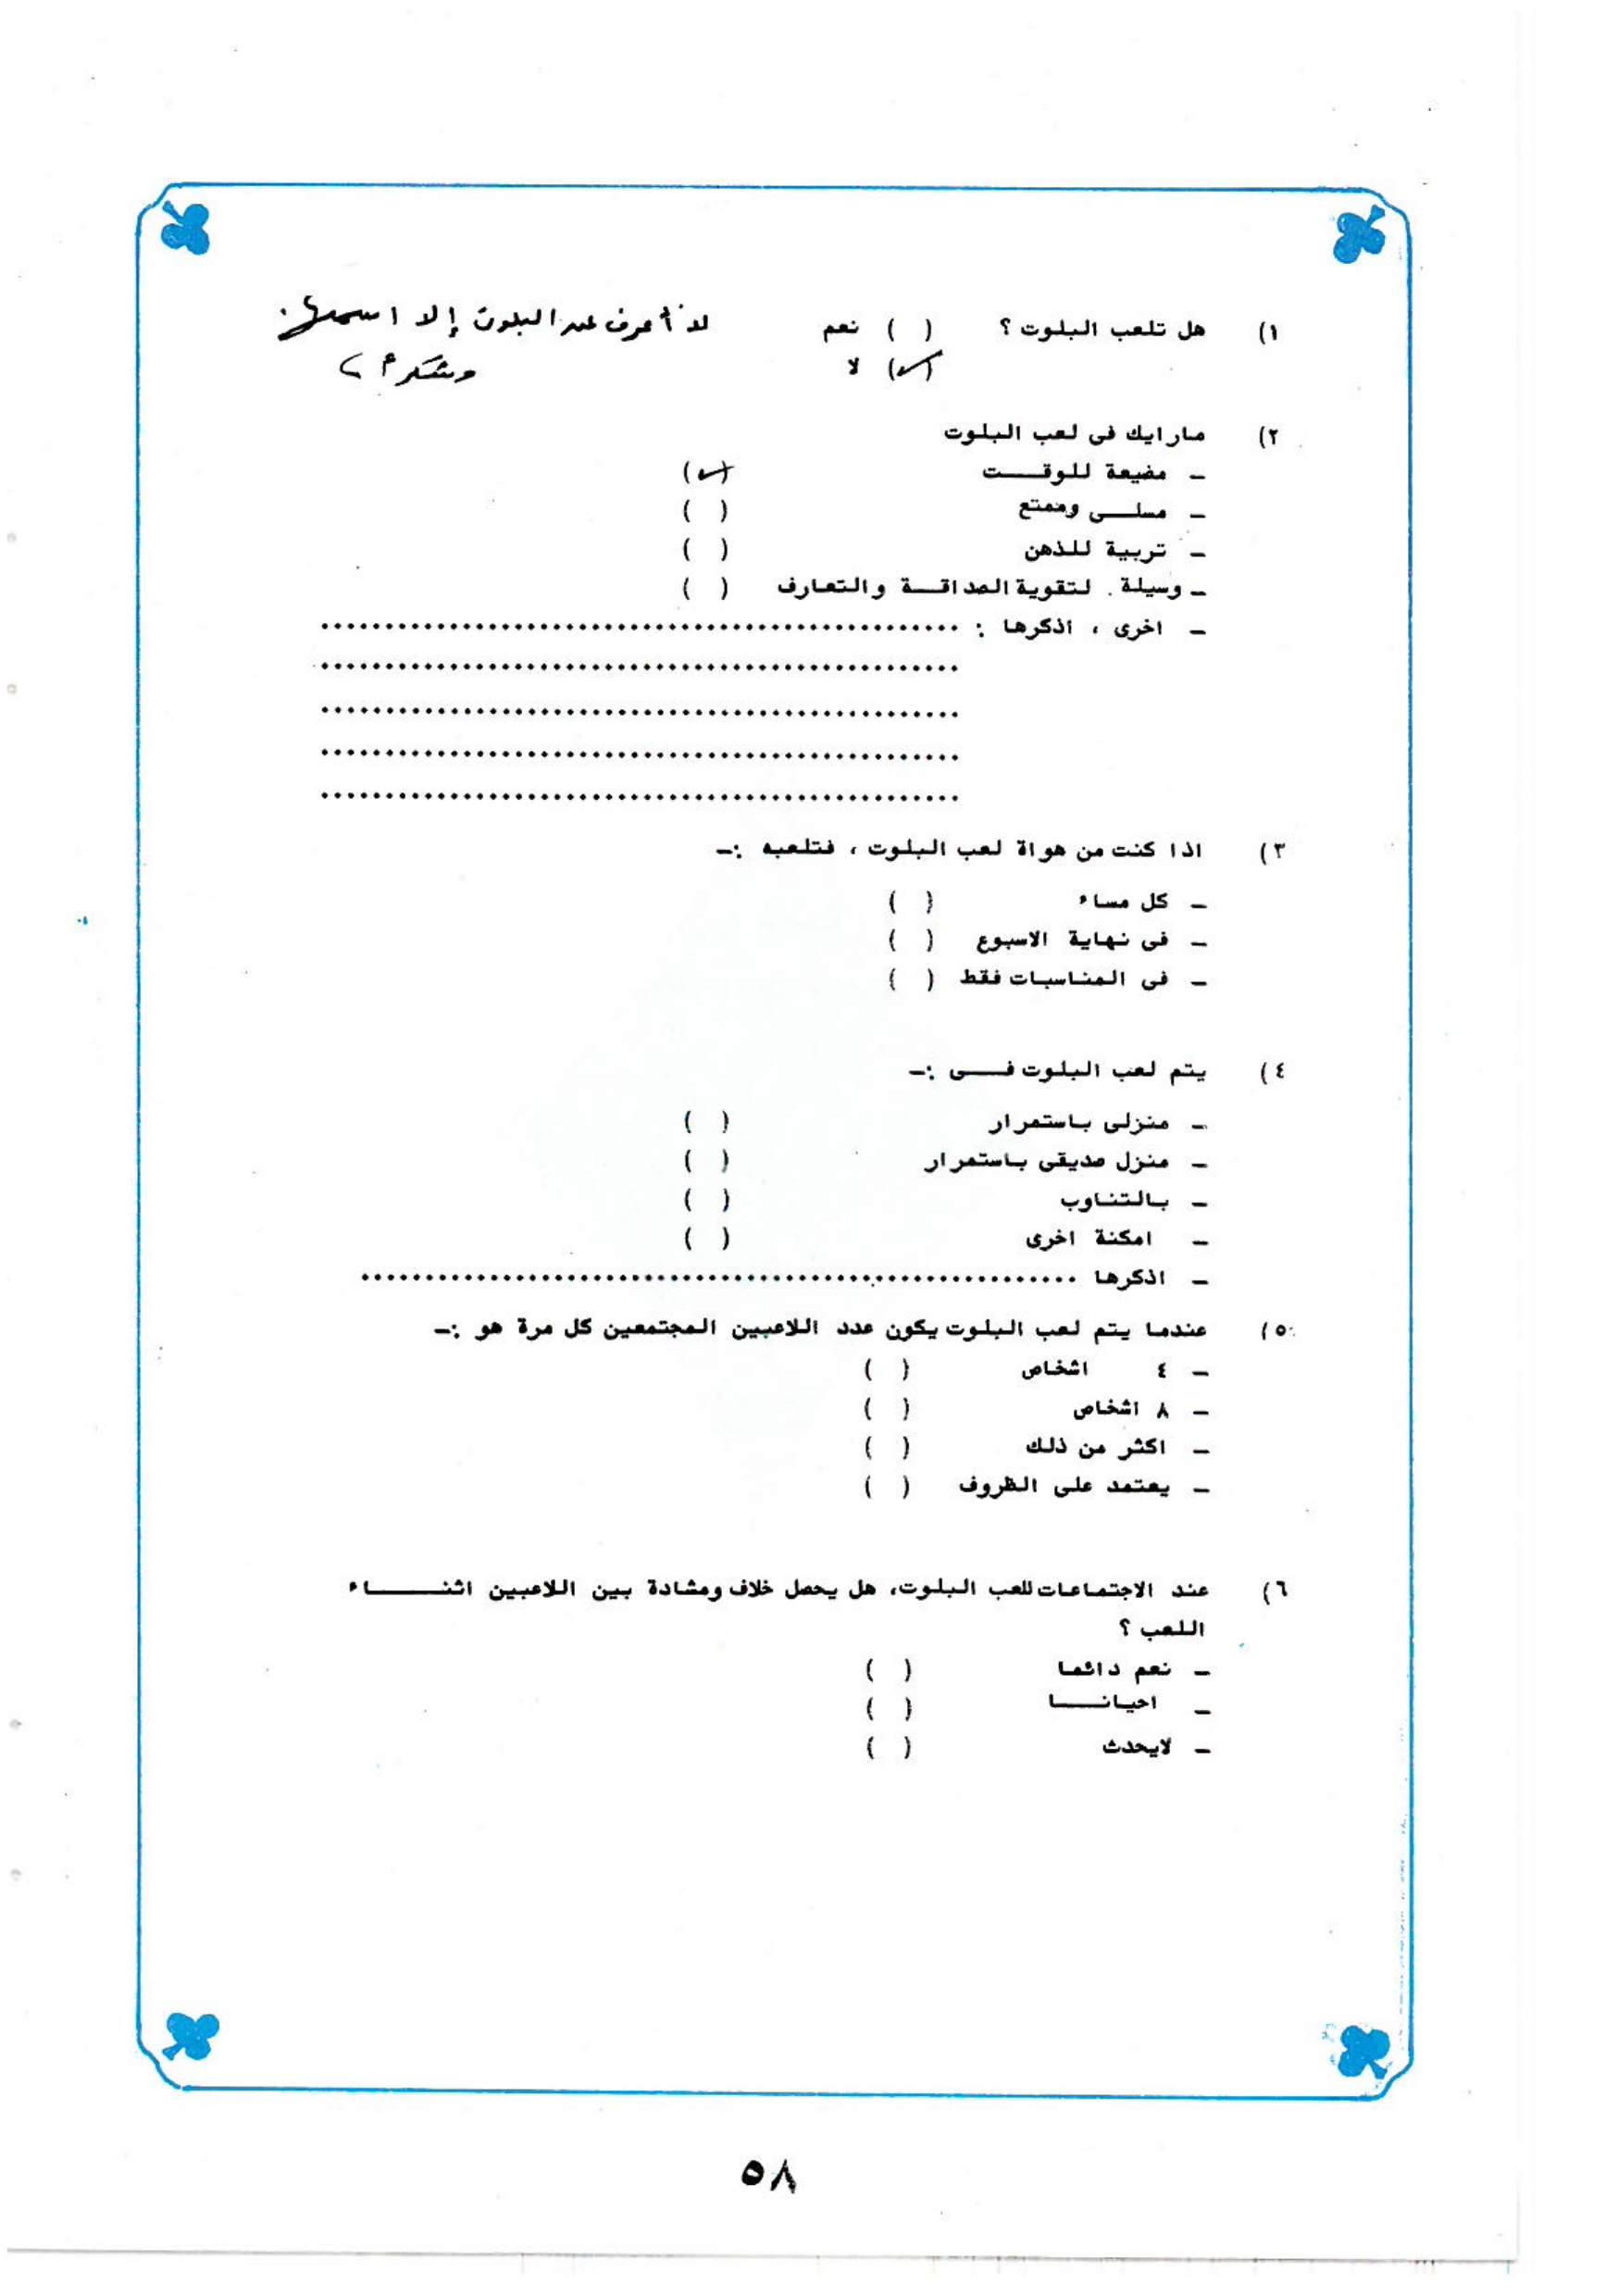 ١) هل تلعب البلوت ؟ ( ) نعم لا أعرف عن البلوت إلا اسمها.
(✓) لا وشكراً
٢) مارايك فى لعب البلوت
ـ مضيعة للوقـــت (✓)
ـ مسلــى وممتع ( )
ـ تربية للذهن ( )
ـ وسيلة لتقوية الصداقــة والتعارف ( )
ـ اخرى ، اذكرها : ..................................................
..................................................
..................................................
..................................................
..................................................
٣) اذا كنت من هواة لعب البلوت ، فتلعبه :ـ
ـ كل مساء ( )
ـ فى نهاية الاسبوع ( )
ـ فى المناسبات فقط ( )
٤) يتم لعب البلوت فــى :ـ
ـ منزلى باستمرار ( )
ـ منزل صديقى باستمرار ( )
ـ بالتناوب ( )
ـ امكنة اخرى ( )
ـ اذكرها ........................................................
٥) عندما يتم لعب البلوت يكون عدد اللاعبين المجتمعين كل مرة هو :ـ
ـ ٤ اشخاص ( )
ـ ٨ اشخاص ( )
ـ اكثر من ذلك ( )
ـ يعتمد على الظروف ( )
٦) عند الاجتماعات للعب البلوت، هل يحصل خلاف ومشادة بين اللاعبين اثنــــاء
اللعب ؟
ـ نعم دائما ( )
ـ احيانــا ( )
ـ لايحدث ( )
٥٨